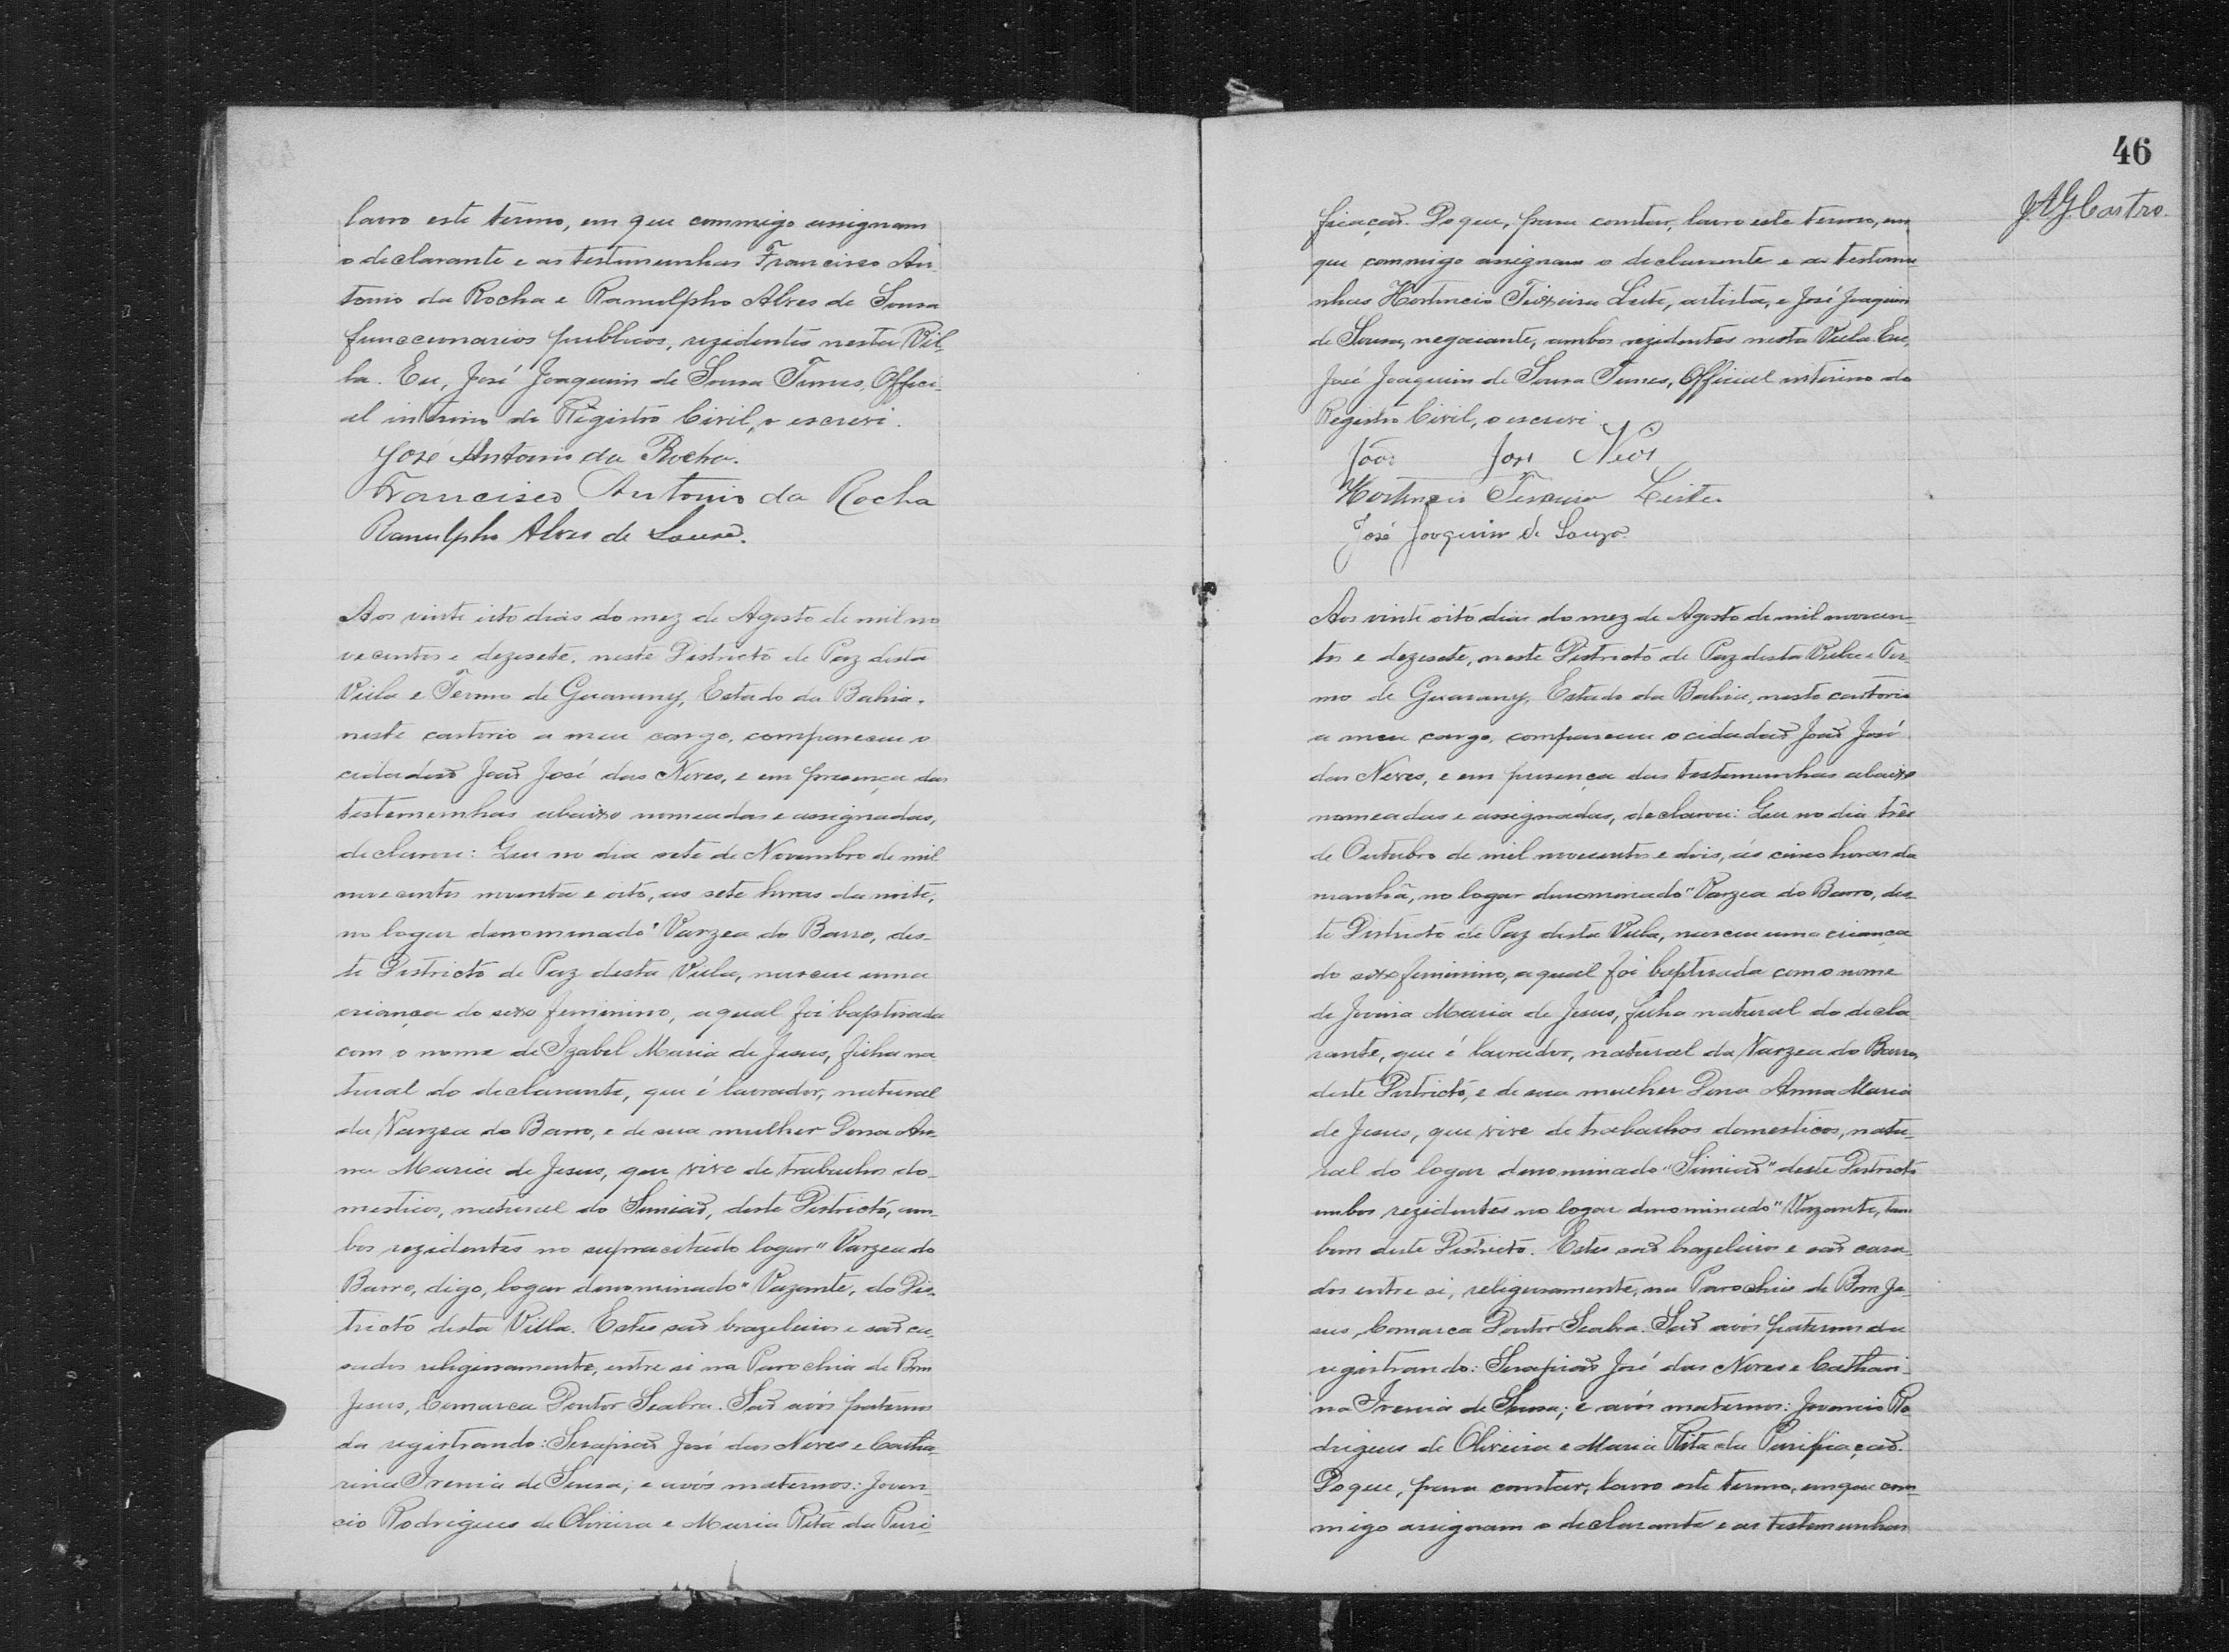 lavro este termo, em que commigo assignam
o declarante e as testemunhas Francisco An-
tonio da Rocha e Ranulpho Alves de Sousa
funccionarios publicos, rezidentes nesta Vil-
la. Eu, José Joaquim de Sousa Tunes, Offici-
al interino do Registro Civil, o escrevi.
José Antonio da Rocha.
Francisco Antonio da Rocha
Ranulpho Alves de Souza.
Aos vinte oito dias do mez de Agosto de mil no
vecentos e dezesete, neste Districto de Paz desta
Villa e Termo de Guarany, Estado da Bahia,
neste cartorio a meu cargo, compareceu o
cidadão João José das Neves, e em presença das
testemunhas abaixo nomeadas e assignadas,
declarou: Que no dia sete de Novembro de mil
novecentos noventa e oito, as sete horas da noite,
no logar denominado "Varzea do Barro, des-
te Districto de Paz desta Villa, nasceu uma
criança do sexo feminino, a qual foi baptisada
com o nome de Izabel Maria de Jesus, filha na
tural do declarante, que é lavrador, natural
da Varzea do Barro, e de sua mulher Dona An-
na Maria de Jesus, que vive de trabalhos do-
mesticos, natural do Simião, deste Districto, am-
bos rezidentes no supracitado logar "Varzea do
Barro, digo, logar denominado "Vazante, do Dis-
tricto desta Villa. Estes são brazileiros e são ca-
sados religiosamente, entre si na Parochia de Bom
Jesus, Comarca Doutor Seabra. São avós paternos
da registrando: Serapião José das Neves e Catha-
rina Irenia de Sousa; e avós maternos: Joven-
cio Rodrigues de Oliveira e Maria Rita da Puri-
46
J.A.G. Castro.
ficação. Do que, para constar, lavro este termo, em
que commigo assignam o declarante e as testemu
nhas Hortencio Teixeira Leite, artista, e José Joaquim
de Sousa, negociante, ambos rezidentes nesta Villa. Eu,
José Joaquim de Sousa Tunes, Official interino do
Registro Civil, o escrevi.
João José Neves
Hortencio Teixeira Leite
José Joaquim de Souza
Aos vinte oito dias do mez de Agosto de mil novecen-
tos e dezesete, neste Districto de Paz desta Villa e Ter-
mo de Guarany, Estado da Bahia, neste cartorio
a meu cargo, compareceu o cidadão João José
das Neves, e em presença das testemunhas abaixo
nomeadas e assignadas, declarou: Que no dia três
de Outubro de mil novecentos e dois, ás cinco horas da
manhã, no logar denominado "Varzea do Barro, des-
te Districto de Paz desta Villa, nasceu uma criança
do sexo feminino, a qual foi baptisada com o nome
de Jovina Maria de Jesus, filha natural do decla
rante, que é lavrador, natural da Varzea do Barro,
deste Districto, e de sua mulher Dona Anna Maria
de Jesus, que vive de trabalhos domesticos, natu-
ral do logar denominado "Simião" deste Districto
ambos rezidentes no logar denominado "Vazante, tam
bem deste Districto. Estes são brazileiros e são casa-
dos entre si, religiosamente, na Parochia de Bom Je-
sus, Comarca Doutor Seabra. São avós paternos da
registrando: Serapião José das Neves e Cathari-
na Irenia de Sousa; e avós maternos: Jovencio Ro-
drigues de Oliveira e Maria Rita da Purificação.
Do que, para constar, lavro este termo, em que com-
migo assignam o declarante e as testemunhas